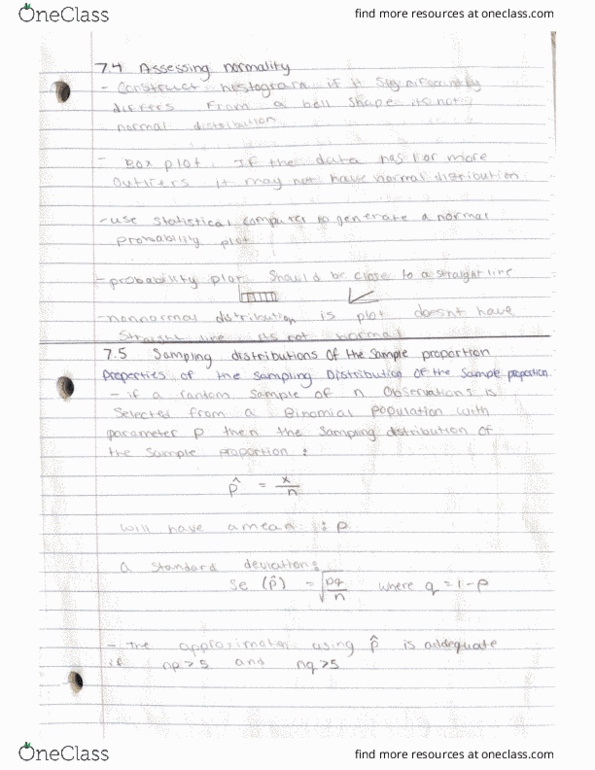 OneClass
find more resources at oneclass.com
7.4 Assessing normality
- Construct histogram if it significantly
differs from a bell shape its not
normal distribution
- Box plot. If the data has 1 or more
outliers it may not have normal distribution
- use statistical computer to generate a normal
probability plot
- probability plot should be close to a straight line
- nonnormal distribution is plot doesnt have
straight line its not normal
7.5 Sampling distributions of the sample proportion
Properties of the sampling Distribution of the sample proportion.
- if a random sample of n observations is
selected from a Binomial population with
parameter p then the sampling distribution of
the sample proportion :
p̂ = x/n
will have a mean : p
a standard deviation:
Se (p̂) = √pq/n where q = 1 - p
- The approximation using p̂ is addequate
if np > 5 and nq > 5
OneClass
find more resources at oneclass.com